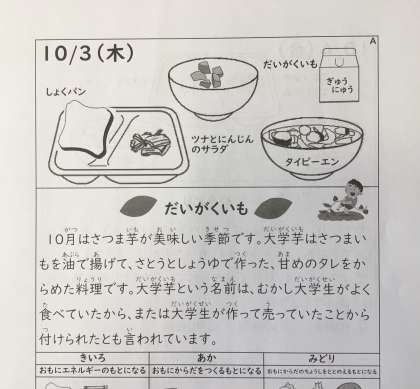 A
10/3(木)
だいがくいも
ぎゅう
にゅう
しょくパン
ツナとにんじん
のサラダ
タイピーエン
だいがくいも
10月はさつま芋が美味しい季節です。大学芋はさつまい
もを油で揚げて、さとうとしょうゆで作った、甘めのタレをか
らめた料理です。大学芋という名前は、むかし大学生がよく
食べていたから、または大学生が作って売っていたことから
付けられたとも言われています。
きいろ
あか
みどり
おもにエネルギーのもとになる
おもにからだをつくるもとになる
おもにからだのちょうしをととのえるもとになる